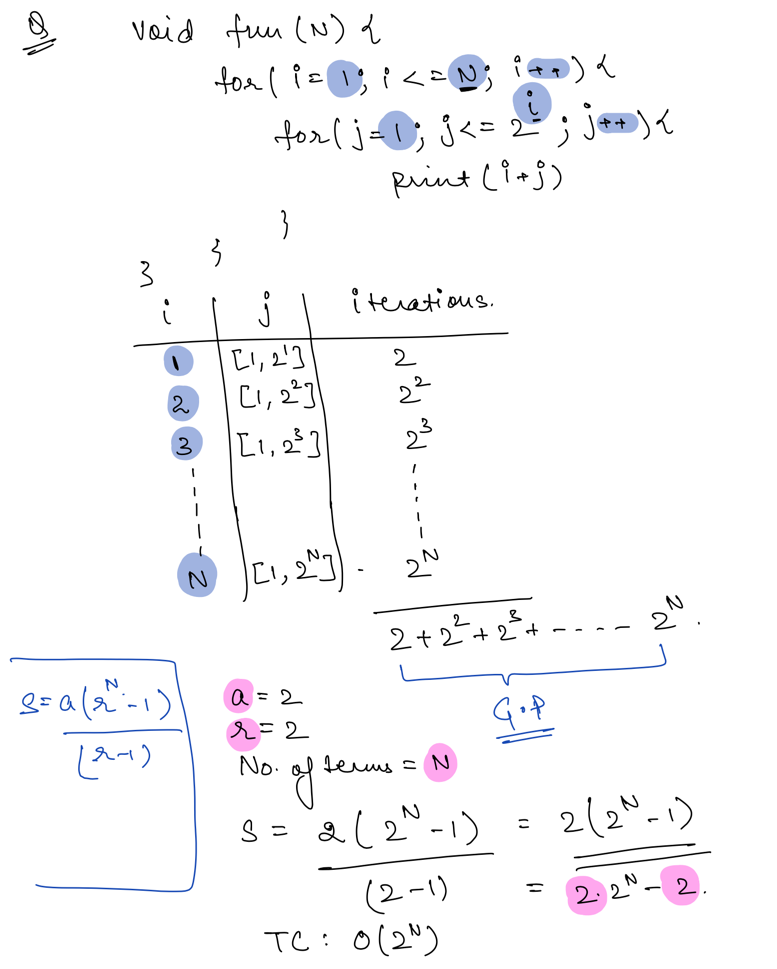 Q void fun (N) {
for( i = 1; i <= N; i++) {
for( j = 1; j <= 2^i ; j++) {
print (i+j)
}
}
}
i | j | iterations.
1 [1, 2^1] 2
2 [1, 2^2] 2^2
3 [1, 2^3] 2^3
N [1, 2^N] . 2^N
2 + 2^2 + 2^3 + ----- 2^N.
G.P
S = a(r^N - 1)
(r-1)
a = 2
r = 2
No. of terms = N
S = 2(2^N - 1) = 2(2^N - 1)
(2-1) = 2.2^N - 2.
TC : O(2^N)